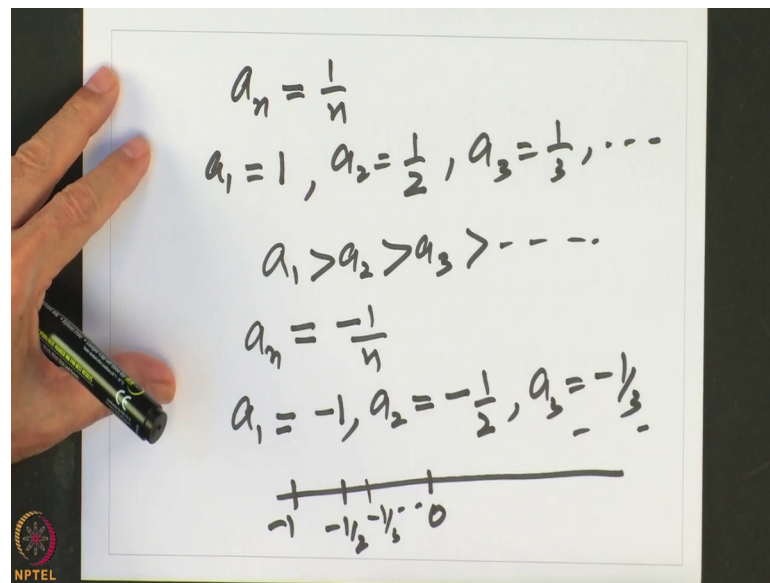 aₙ = 1/n
a₁ = 1 , a₂ = 1/2 , a₃ = 1/3 , ...
a₁ > a₂ > a₃ > - - - -.
aₙ = -1/n
a₁ = -1, a₂ = -1/2 , a₃ = -1/3 - -
-1 -1/2 -1/3 ... 0
NPTEL